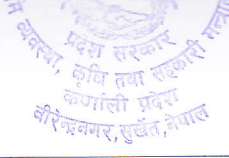 प्रदेश सरकार
व्यवस्था, कृषि तथा सहकारी
कर्णाली प्रदेश
वीरेन्द्रनगर, सुर्खेत, नेपाल